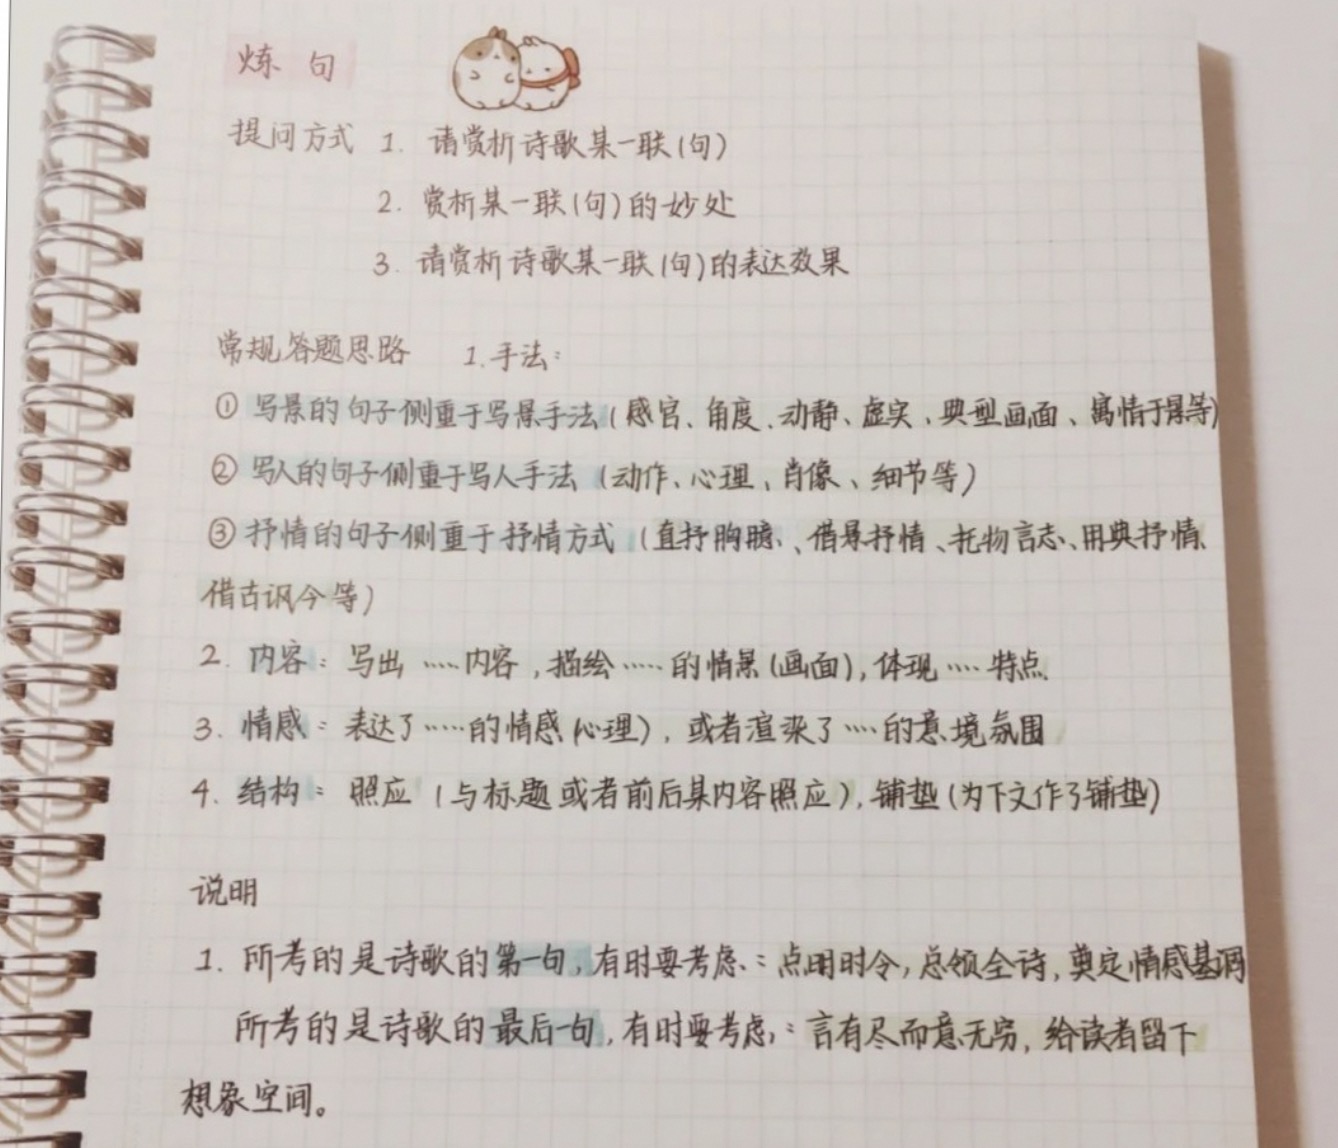 炼 句
提问方式 1. 请赏析诗歌某一联(句)
2. 赏析某一联(句)的妙处
3. 请赏析诗歌某一联(句)的表达效果
常规答题思路 1.手法:
① 写景的句子侧重于写景手法(感官、角度、动静、虚实、典型画面、寓情于景等)
② 写人的句子侧重于写人手法(动作、心理、肖像、细节等)
③ 抒情的句子侧重于抒情方式(直抒胸臆、借景抒情、托物言志、用典抒情、
借古讽今等)
2. 内容: 写出……内容,描绘……的情景(画面),体现……特点.
3. 情感: 表达了……的情感(心理),或者渲染了……的意境氛围
4. 结构: 照应(与标题或者前后某内容照应),铺垫(为下文作了铺垫)
说明
1. 所考的是诗歌的第一句,有时要考虑:点明时令,总领全诗,奠定情感基调
所考的是诗歌的最后一句,有时要考虑:言有尽而意无穷,给读者留下
想象空间。